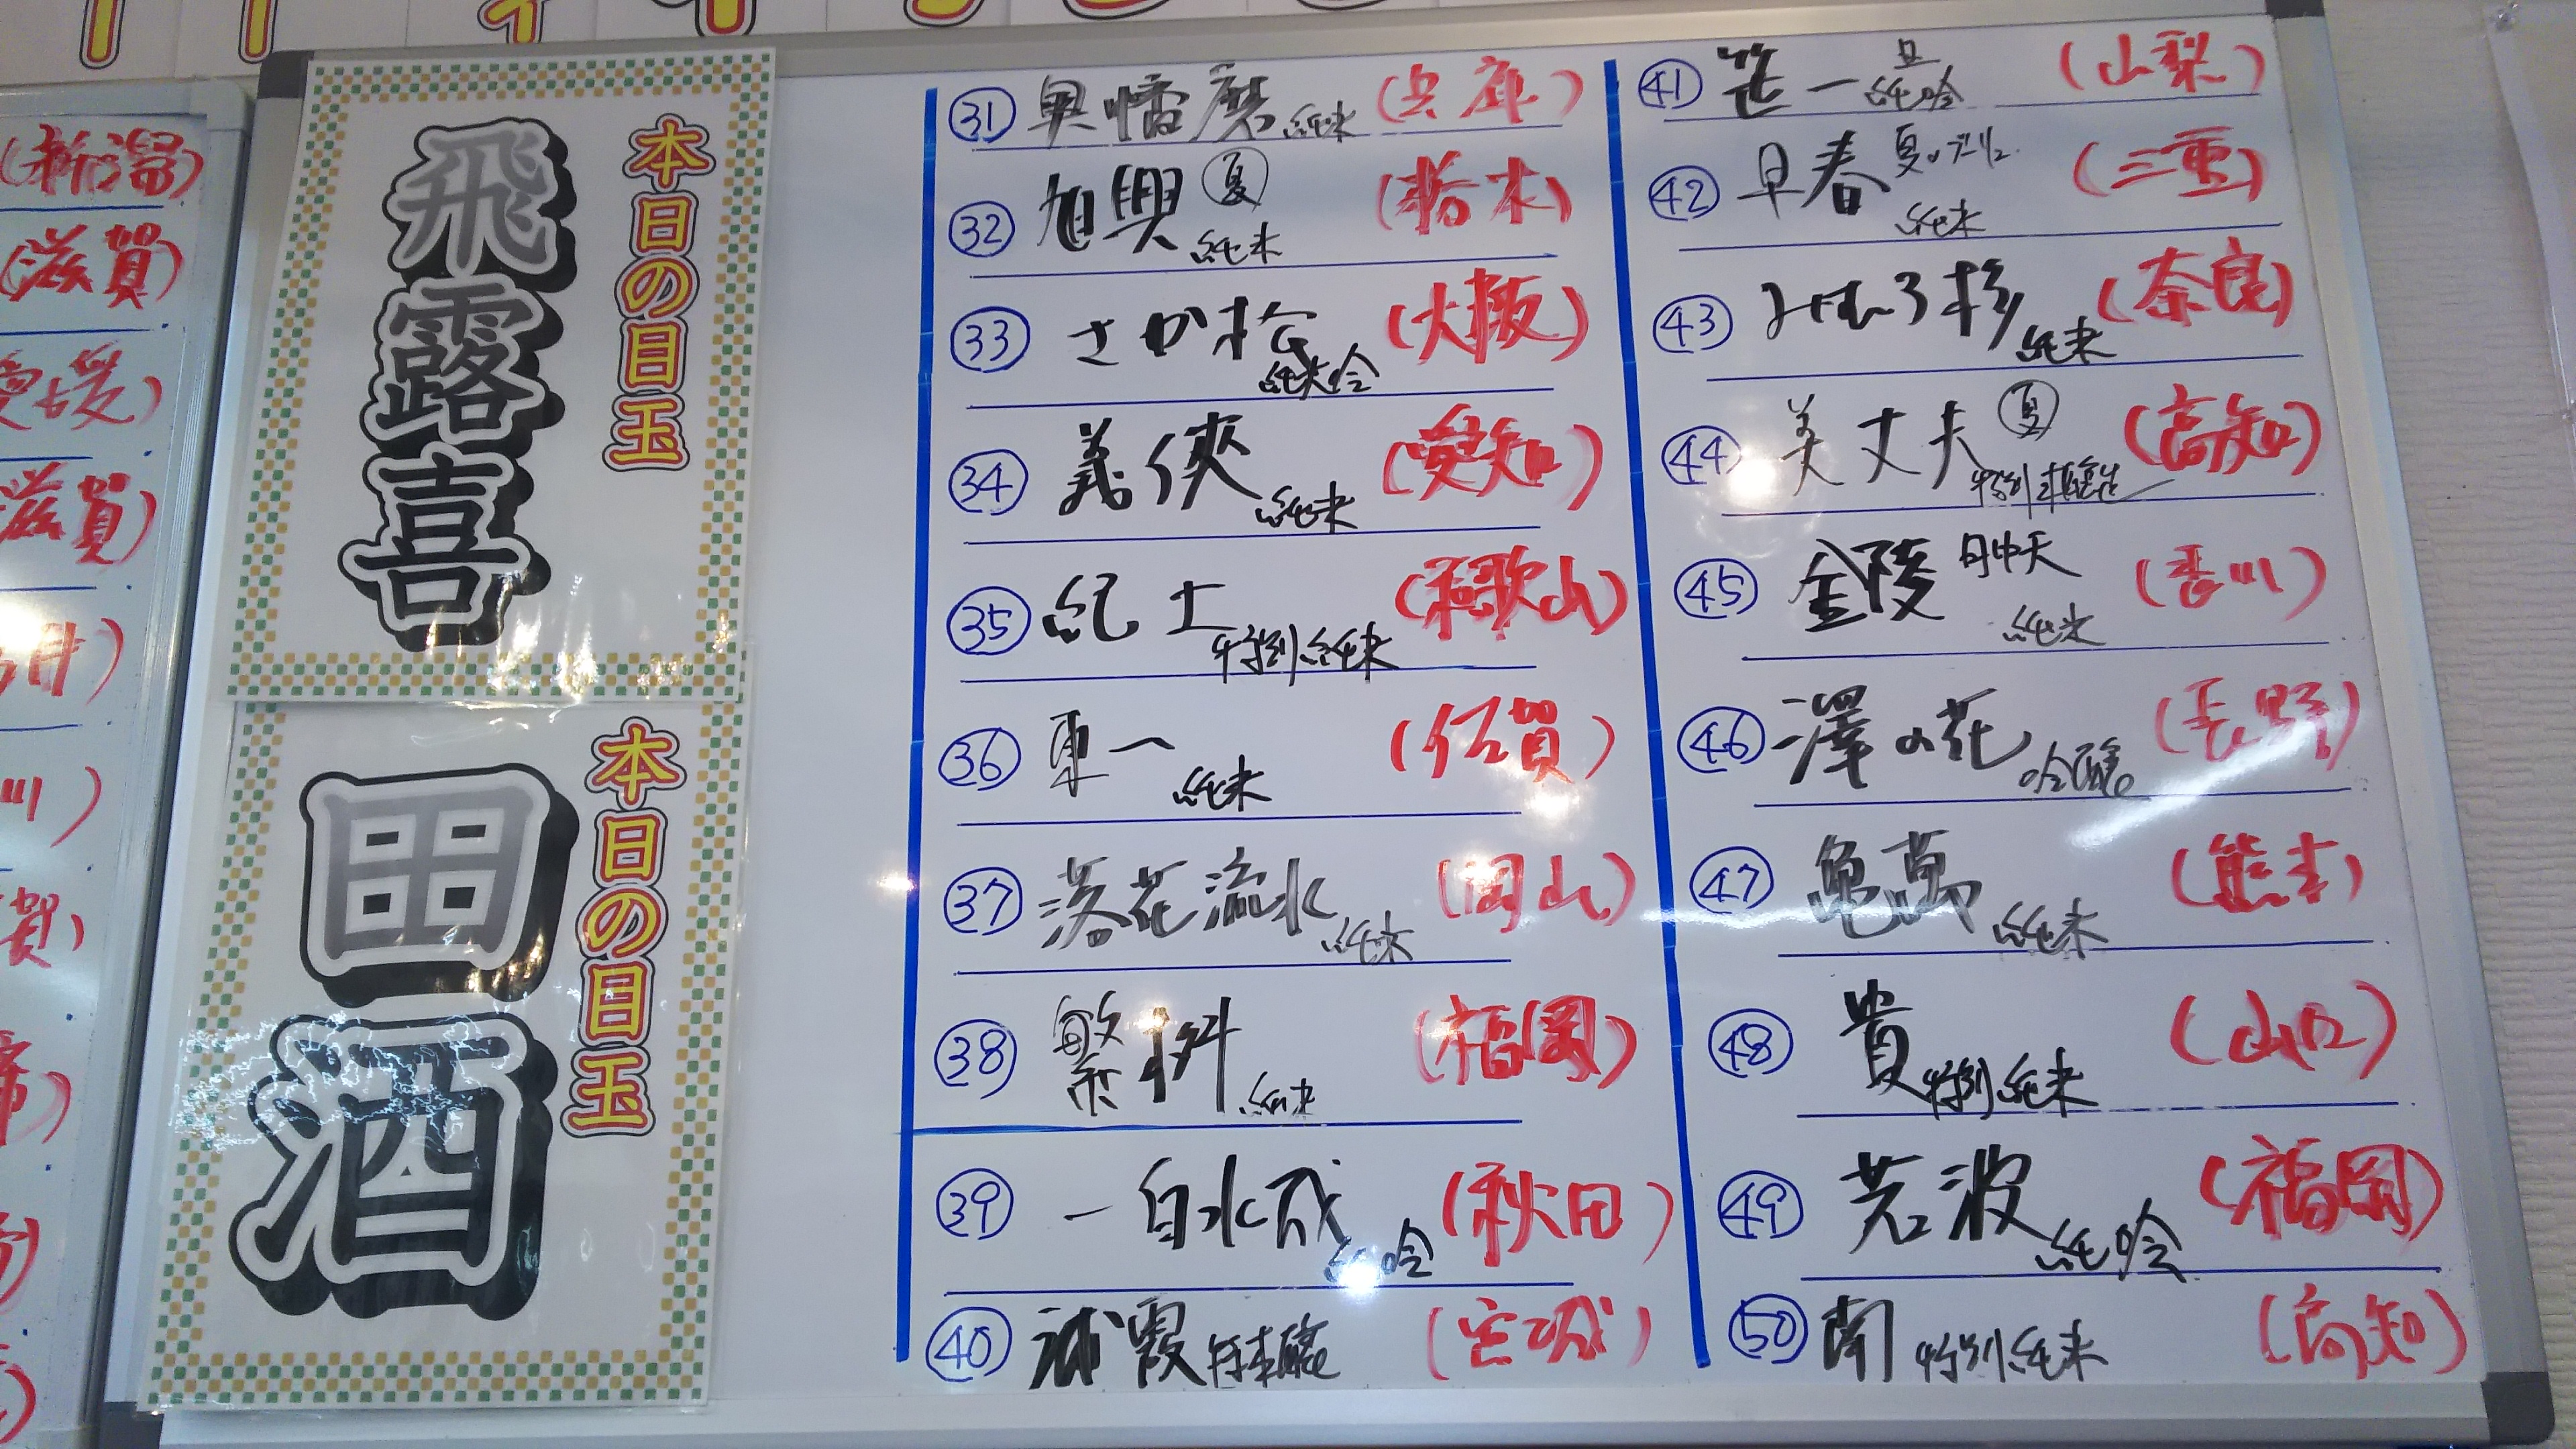 本日の目玉
飛露喜
本日の目玉
田酒
(新潟)
(滋賀)
愛媛)
滋賀)
川)
賀)
㉛ 奥播磨 純米 (兵庫)
㉜ 旭興 夏 純米 (栃木)
㉝ さか松 純米吟 (大阪)
㉞ 義侠 純米 (愛知)
㉟ 紀土 特別純米 (和歌山)
㊱ 東一 純米 (佐賀)
㊲ 落花流水 純米 (岡山)
㊳ 繁桝 純米 (福岡)
㊴ 一白水成 純吟 (秋田)
㊵ 浦霞 本醸 (宮城)
㊶ 笹一 旦 純吟 (山梨)
㊷ 早春 夏の 純米 (三重)
㊸ みむろ杉 純米 (奈良)
㊹ 美丈夫 夏 特別本醸造 (高知)
㊺ 金陵 月中天 純米 (香川)
㊻ 澤の花 吟醸 (長野)
㊼ 亀萬 純米 (熊本)
㊽ 貴 特別純米 (山口)
㊾ 若波 純吟 (福岡)
㊿ 南 特別純米 (高知)